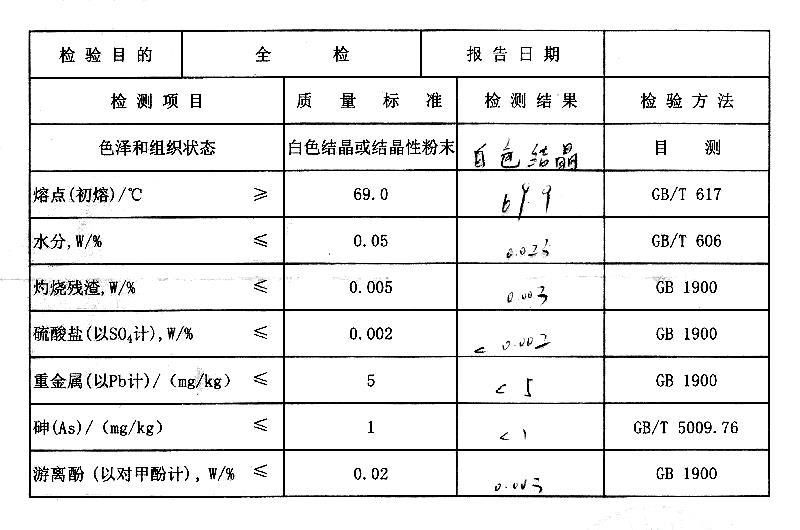 检验目的 全检 报告日期
检测项目 质量标准 检测结果 检验方法
色泽和组织状态 白色结晶或结晶性粉末 白色结晶 目测
熔点(初熔)/℃ ≥ 69.0 69.9 GB/T 617
水分,W/% ≤ 0.05 GB/T 606
灼烧残渣,W/% ≤ 0.005 0.003 GB 1900
硫酸盐(以SO₄计),W/% ≤ 0.002 <0.002 GB 1900
重金属(以Pb计)/(mg/kg) ≤ 5 <5 GB 1900
砷(As)/(mg/kg) ≤ 1 <1 GB/T 5009.76
游离酚(以对甲酚计),W/% ≤ 0.02 GB 1900